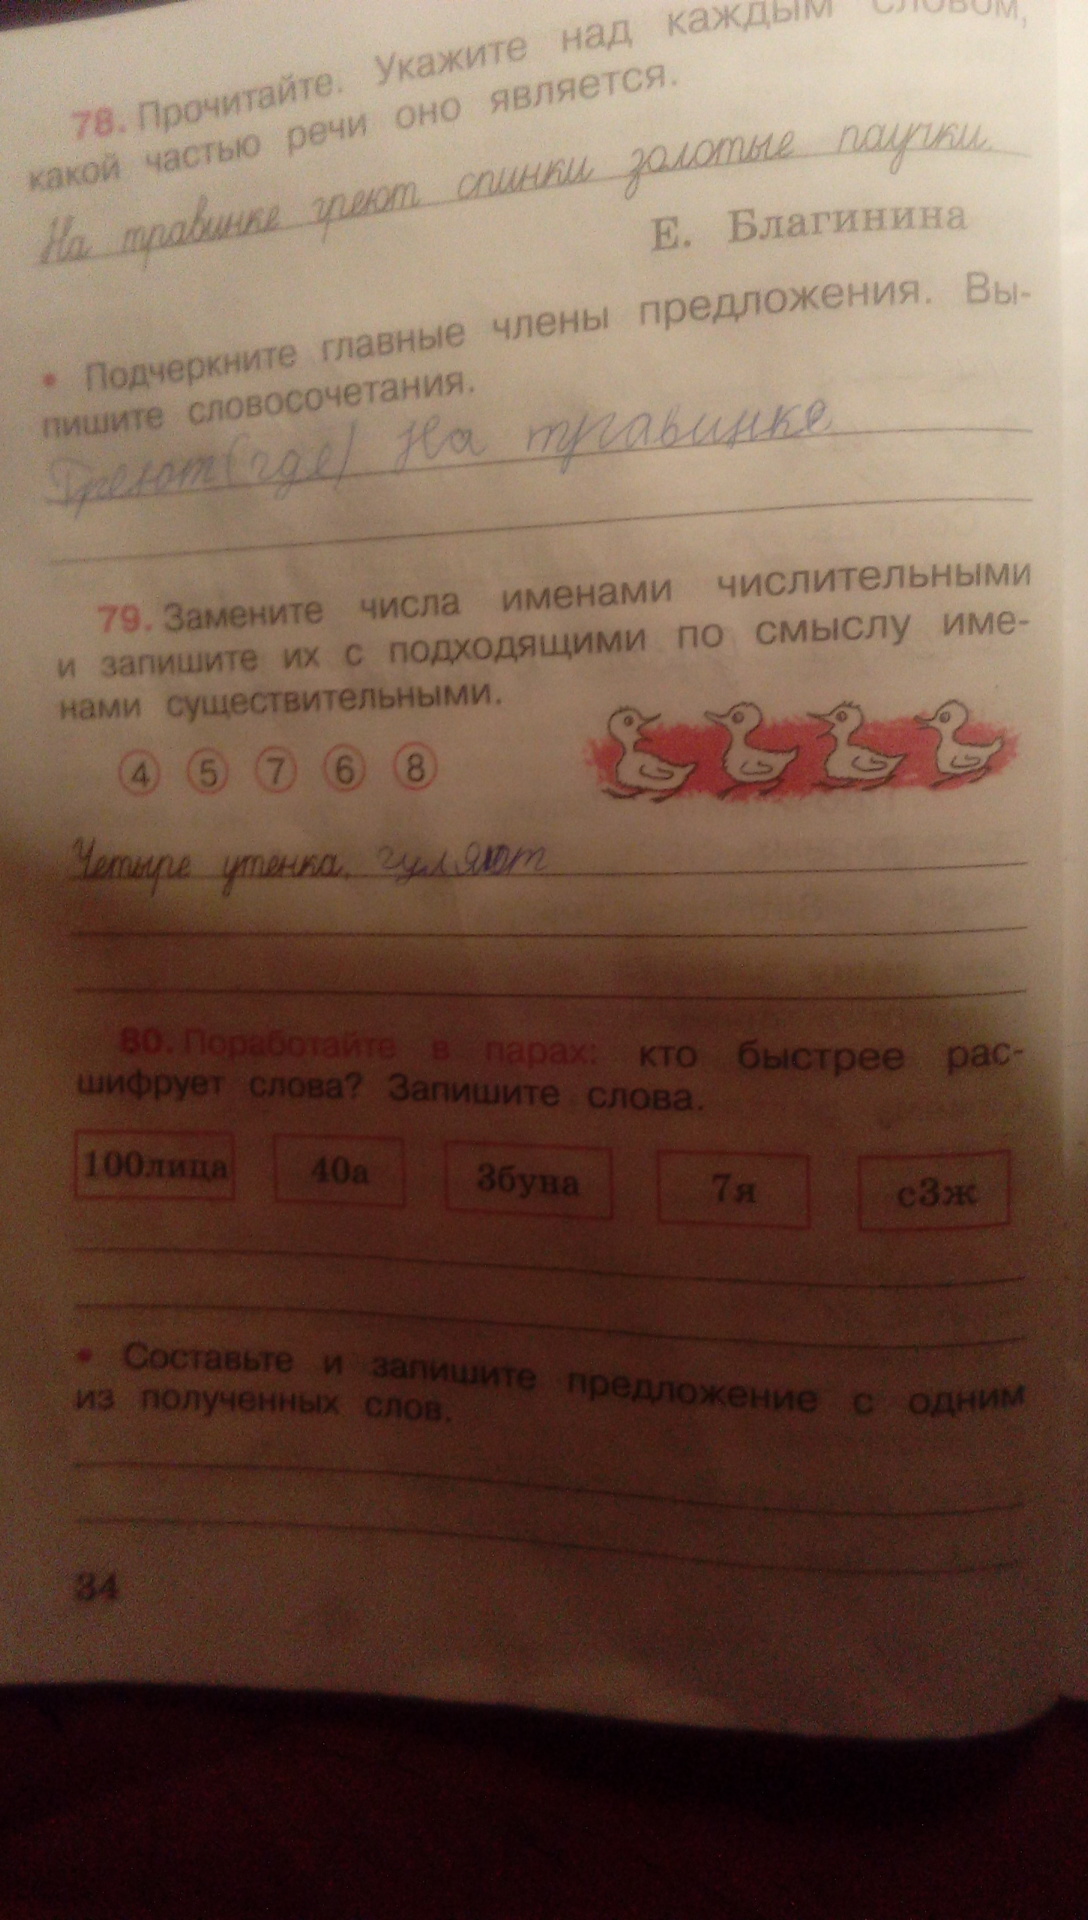 78. Прочитайте. Укажите над каждым словом,
какой частью речи оно является.
На травинке греют спинки золотые паучки.
Е. Благинина
• Подчеркните главные члены предложения. Вы-
пишите словосочетания.
Греют (где) На травинке
79. Замените числа именами числительными
и запишите их с подходящими по смыслу име-
нами существительными.
4 5 7 6 8
Четыре утенка, гуляют
80. Поработайте в парах: кто быстрее рас-
шифрует слова? Запишите слова.
100лица 40а 3буна 7я с3ж
• Составьте и запишите предложение с одним
из полученных слов.
34